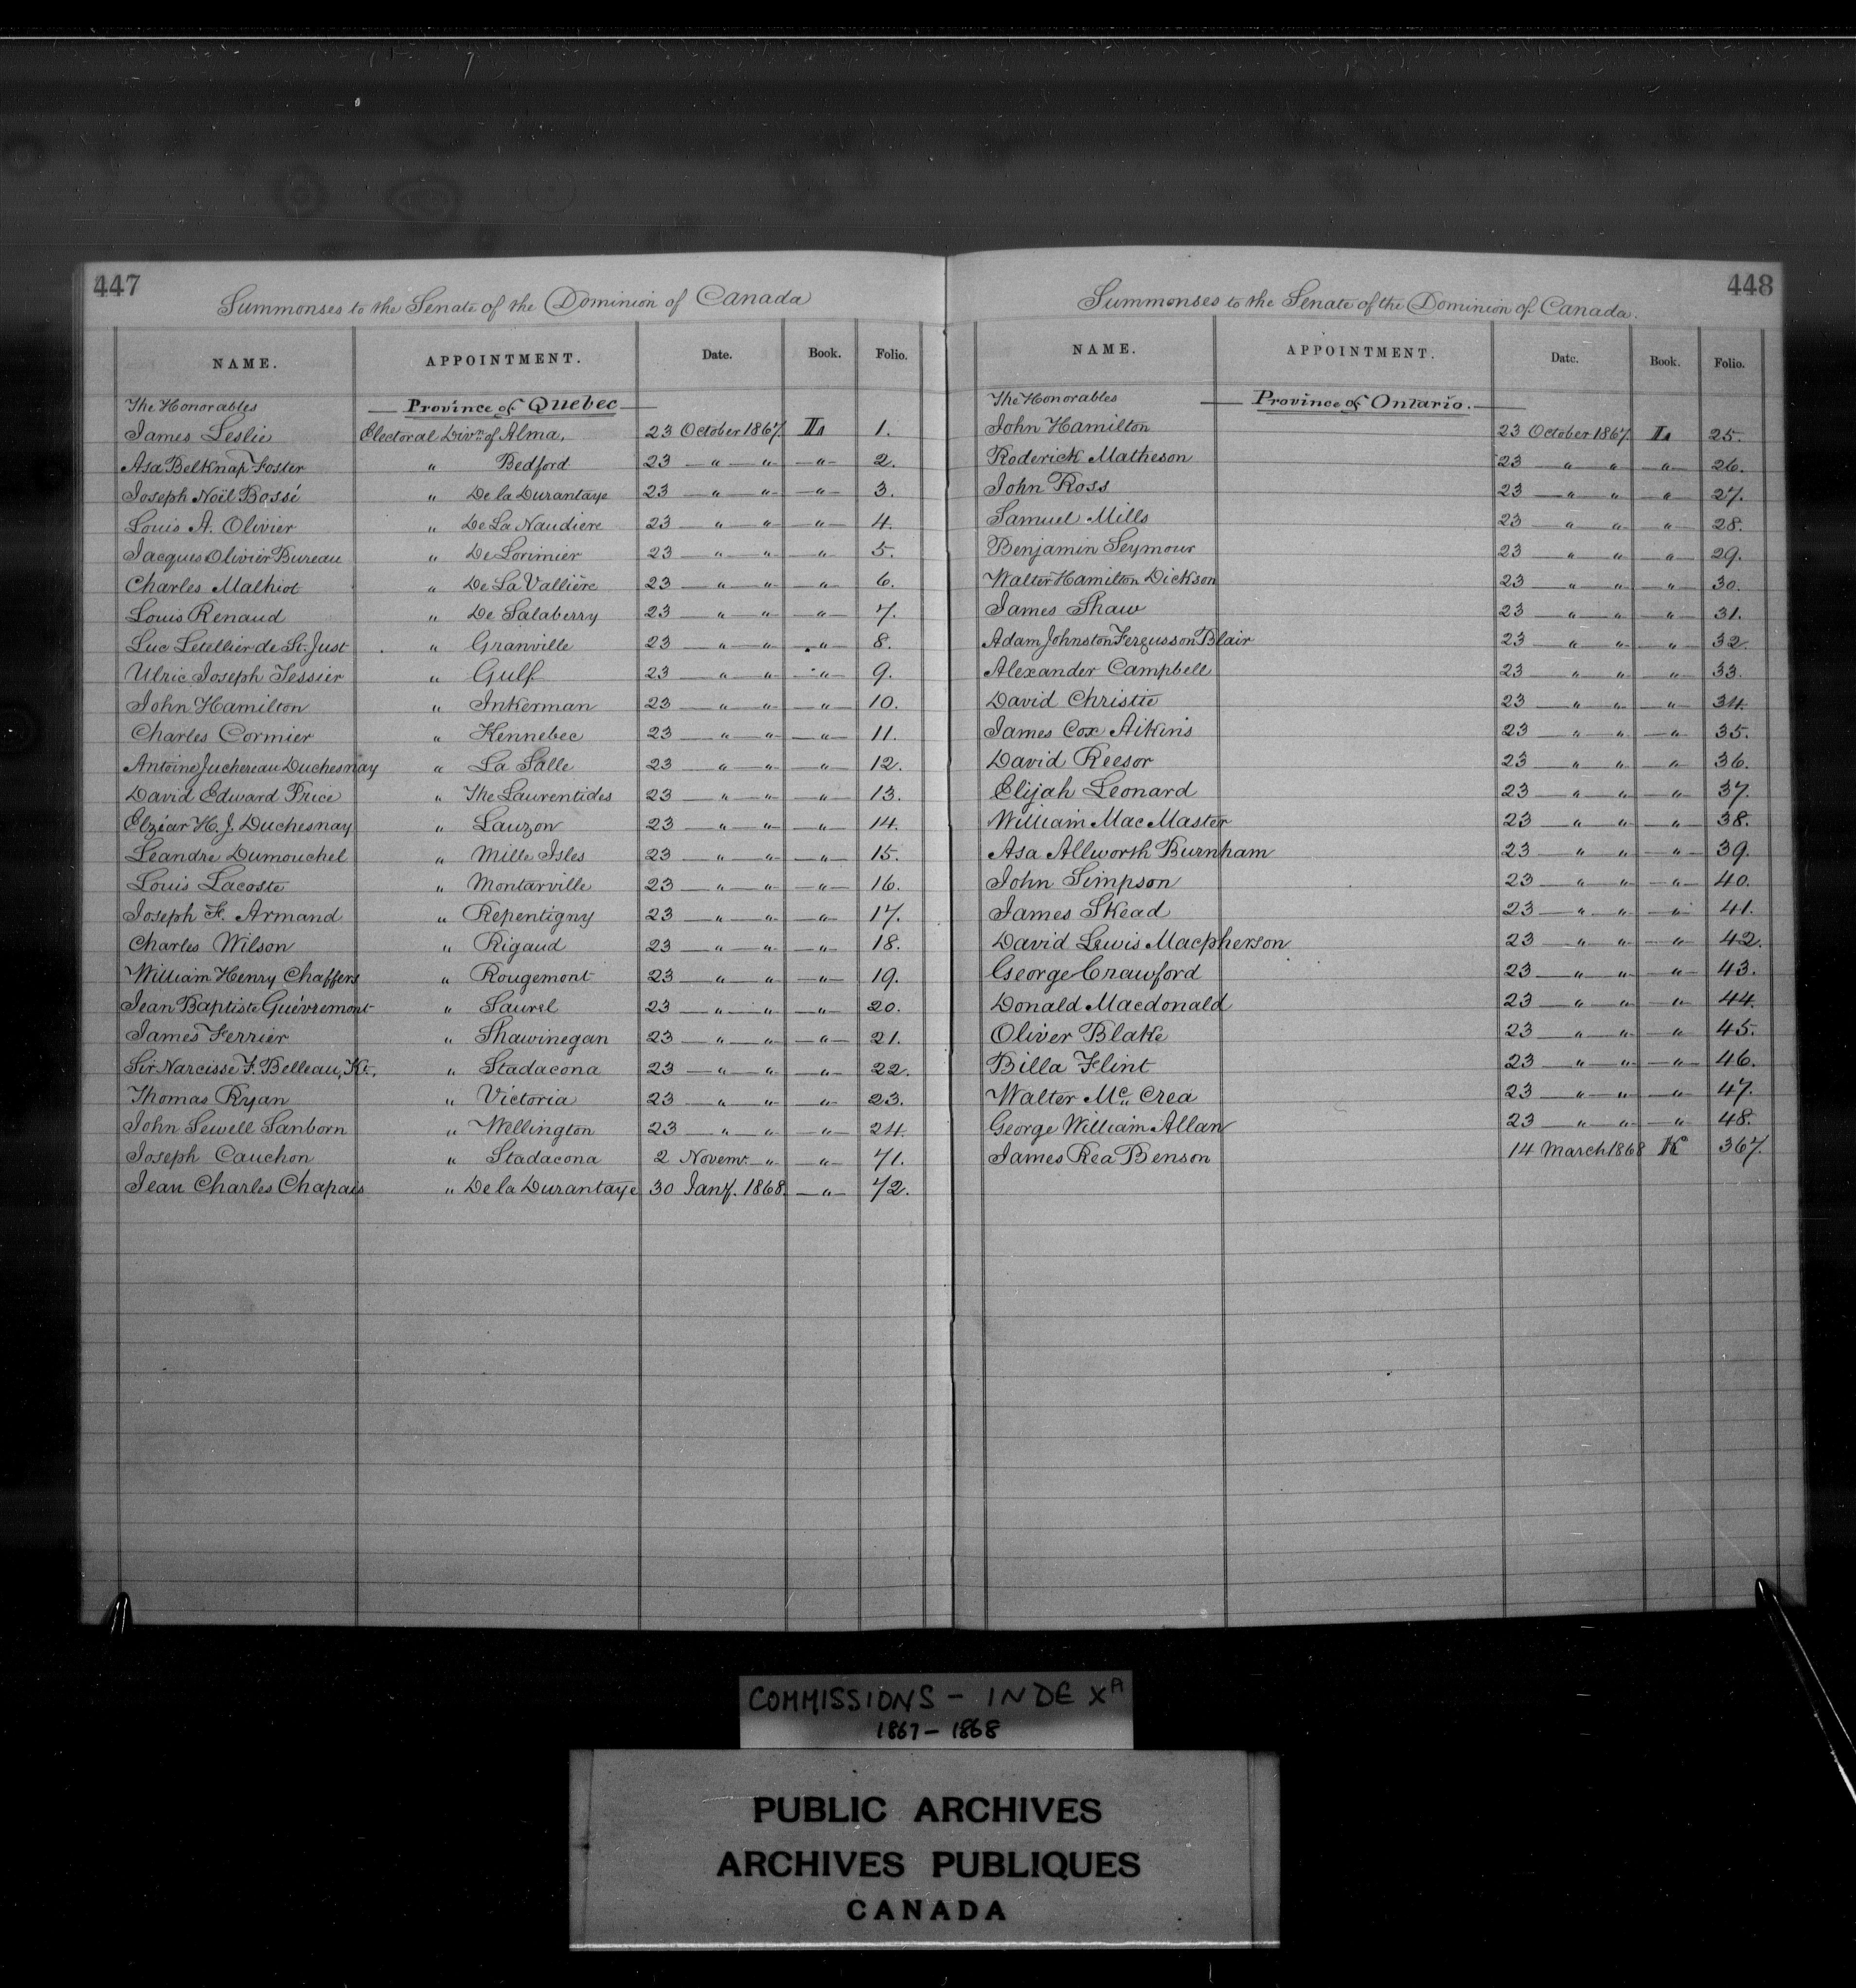 447
Summonses to the Senate of the Dominion of Canada
NAME. APPOINTMENT. Date. Book. Folio.
The Honorables Province of Quebec
James Leslie Electoral Divn. of Alma, 23 October 1867 1.
Asa Belknap Foster " Bedford 23 " " " 2.
Joseph Noël Bossé " De la Durantaye 23 " " " 3.
Louis A. Olivier " De La Naudiere 23 " " " 4.
Jacques Olivier Bureau " De Lorimier 23 " " " 5.
Charles Malhiot " De La Vallière 23 " " " 6.
Louis Renaud " De Salaberry 23 " " " 7.
Luc Letellier de St. Just " Granville 23 " " " 8.
Ulric Joseph Tessier " Gulf 23 " " " 9.
John Hamilton " Inkerman 23 " " " 10.
Charles Cormier " Kennebec 23 " " " 11.
Antoine Juchereau Duchesnay " La Salle 23 " " " 12.
David Edward Price " The Laurentides 23 " " " 13.
Elzéar H. J. Duchesnay " Lauzon 23 " " " 14.
Leandre Dumouchel " Mille Isles 23 " " " 15.
Louis Lacoste " Montarville 23 " " " 16.
Joseph F. Armand " Repentigny 23 " " " 17.
Charles Wilson " Rigaud 23 " " " 18.
William Henry Chaffers " Rougemont 23 " " " 19.
Jean Baptiste Guévremont " Saurel 23 " " " 20.
James Ferrier " Shawinegan 23 " " " 21.
Sir Narcisse F. Belleau, Kt., " Stadacona 23 " " " 22.
Thomas Ryan " Victoria 23 " " " 23.
John Sewell Sanborn " Wellington 23 " " " 24.
Joseph Cauchon " Stadacona 2 Novemr. " " 71.
Jean Charles Chapais " De la Durantaye 30 Jany. 1868 " 72.
448
Summonses to the Senate of the Dominion of Canada.
NAME. APPOINTMENT. Date. Book. Folio.
The Honorables Province of Ontario.
John Hamilton 23 October 1867 25.
Roderick Matheson 23 " " " 26.
John Ross 23 " " " 27.
Samuel Mills 23 " " " 28.
Benjamin Seymour 23 " " " 29.
Walter Hamilton Dickson 23 " " " 30.
James Shaw 23 " " " 31.
Adam Johnston Fergusson Blair 23 " " " 32.
Alexander Campbell 23 " " " 33.
David Christie 23 " " " 34.
James Cox Aikins 23 " " " 35.
David Reesor 23 " " " 36.
Elijah Leonard 23 " " " 37.
William MacMaster 23 " " " 38.
Asa Allworth Burnham 23 " " " 39.
John Simpson 23 " " " 40.
James Skead 23 " " " 41.
David Lewis Macpherson 23 " " " 42.
George Crawford 23 " " " 43.
Donald Macdonald 23 " " " 44.
Oliver Blake 23 " " " 45.
Billa Flint 23 " " " 46.
Walter Mc Crea 23 " " " 47.
George William Allan 23 " " " 48.
James Rea Benson 14 March 1868 K 367.
COMMISSIONS - INDEX A
1867-1868
PUBLIC ARCHIVES
ARCHIVES PUBLIQUES
CANADA